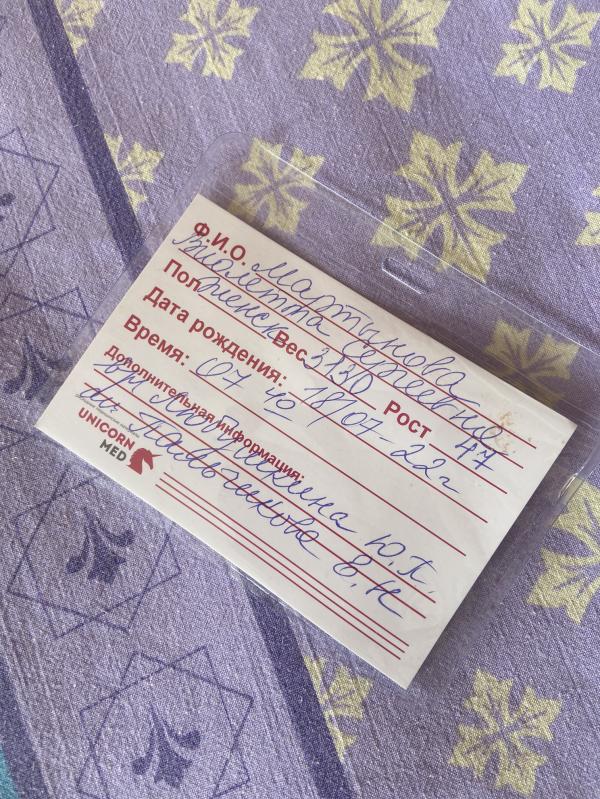 Ф.И.О. Мартынова
Виолетта Сергеевна
Пол женск Вес 3130 Рост 47
Дата рождения: 18/07-22г
Время: 07 40
Дополнительная информация:
вр. Ю.П.
ан. Пальчикова В.Н
UNICORN
MED